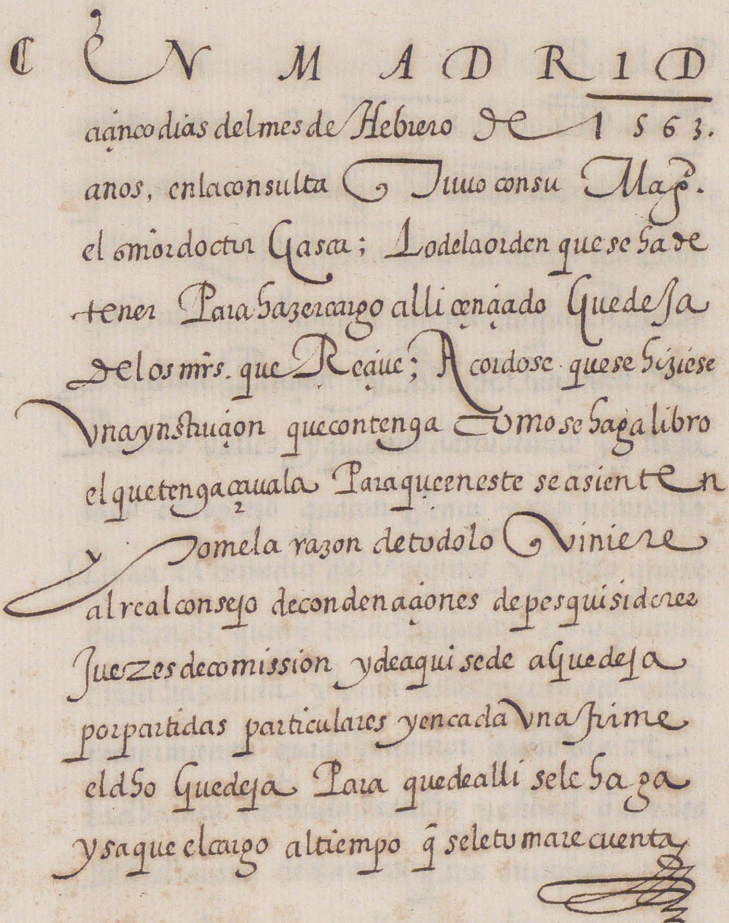 EN MADRID
a cinco dias del mes de Hebrero de 1563.
anos, en la consulta q tuuo con su Magd.
el señor doctor Gasca; Lo de la orden que se ha de
tener Para hazer cargo al licençiado Guedeja
De los mrs. que Reciue; Acordose que se hiziese
Vna ynstruçion que contenga como se haga libro
el que tenga çauala Para que en este se asienten
y tome la razon de todo lo q viniere
al real consejo de condenaçiones de pesquisidores
Juezes de comission y de aqui se de a Guedeja
por partidas particulares y en cada Vna firme
el dho Guedeja Para que de alli se le haga
y saque el cargo al tiempo q̃ se le tomare cuenta